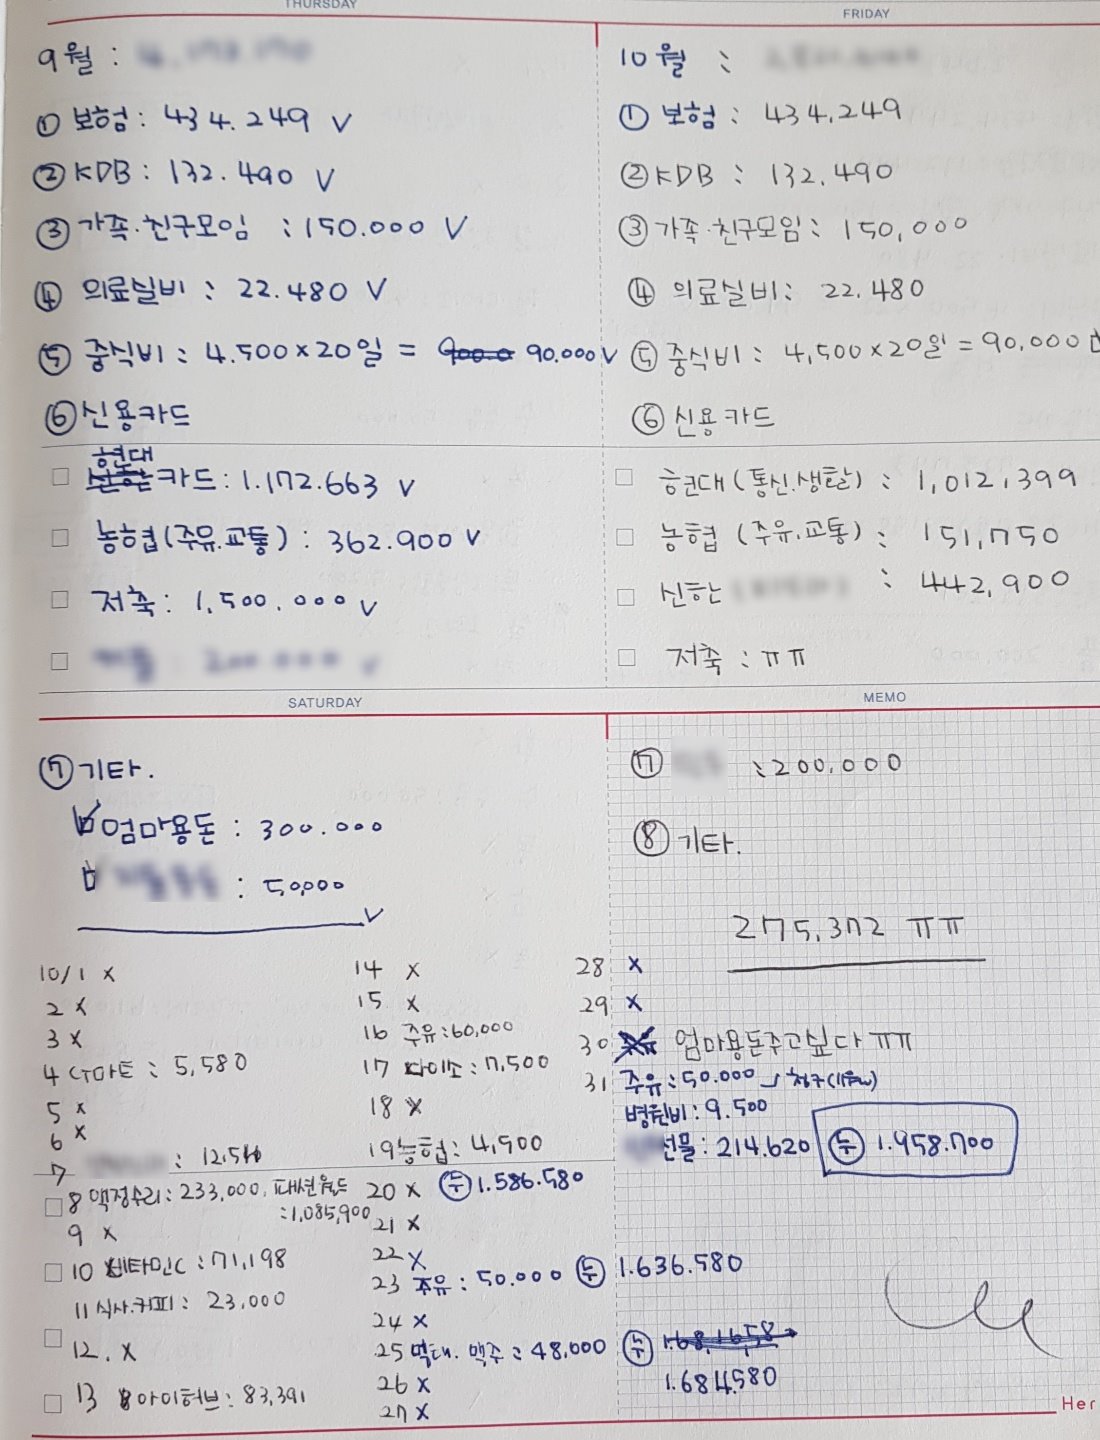 THURSDAY
9월 :
① 보험 : 434.249 V
② KDB : 132.490 V
③ 가족.친구모임 : 150.000 V
④ 의료실비 : 22.480 V
⑤ 중식비 : 4.500×20일 = 90.000 V
⑥ 신용카드
현대
카드 : 1.172.663 V
농협(주유.교통) : 362.900 V
저축 : 1,500.000 V
200.000 V
FRIDAY
10월 :
① 보험 : 434,249
② KDB : 132,490
③ 가족.친구모임 : 150,000
④ 의료실비 : 22,480
⑤ 중식비 : 4,500×20일 = 90,000
⑥ 신용카드
현대(통신.생활) : 1,012,399
농협 (주유.교통) : 151,750
신한 : 442,900
저축 : ㅠㅠ
SATURDAY
⑦ 기타.
엄마용돈 : 300.000
: 50,000
V
10/1 X
2 X
3 X
4 마트 : 5,580
5 X
6 X
7
8 액정수리 : 233,000, 패션월드
: 1,085,900
9 X
10 비타민C : 71,198
11 식사.커피 : 23,000
12. X
13 아이허브 : 83,391
14 X
15 X
16 주유 : 60,000
17 다이소 : 7,500
18 X
19 농협 : 4,500
20 X 누 1.586.580
21 X
22 X
23 주유 : 50.000 누 1.636.580
24 X
25 먹태.맥주 : 48,000 누
1.684.580
26 X
27 X
MEMO
⑦ : 200,000
⑧ 기타.
275,372 ㅠㅠ
28 X
29 X
30 엄마용돈주고싶다 ㅠㅠ
31 주유 : 50.000
병원비 : 9.500
선물 : 214.620 누 1.958.700
Her